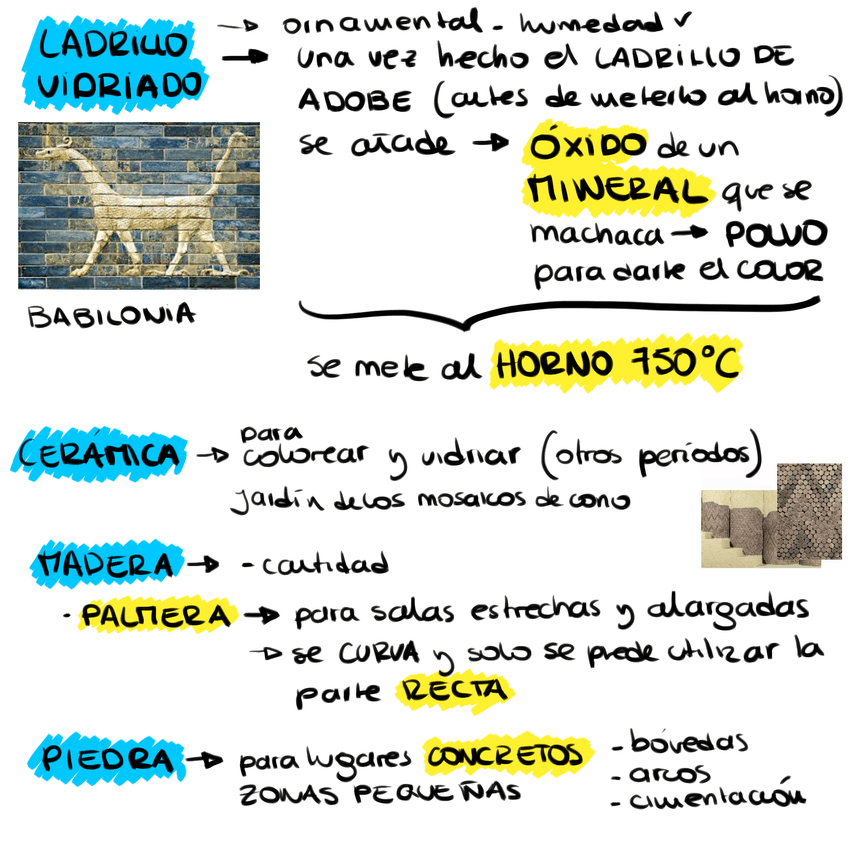 LADRILLO
VIDRIADO
→ ornamental - humedad ✓
→ una vez hecho el LADRILLO DE
ADOBE (antes de meterlo al horno)
se añade → ÓXIDO de un
MINERAL que se
machaca → POLVO
para darle el COLOR
BABILONIA
se mete al HORNO 750°C
CERÁMICA → para
colorear y vidriar (otros períodos)
Jardín de los mosaicos de cono
MADERA → - cantidad
- PALMERA → para salas estrechas y alargadas
→ se CURVA y solo se puede utilizar la
parte RECTA
PIEDRA → para lugares CONCRETOS
ZONAS PEQUEÑAS
- bóvedas
- arcos
- cimentación